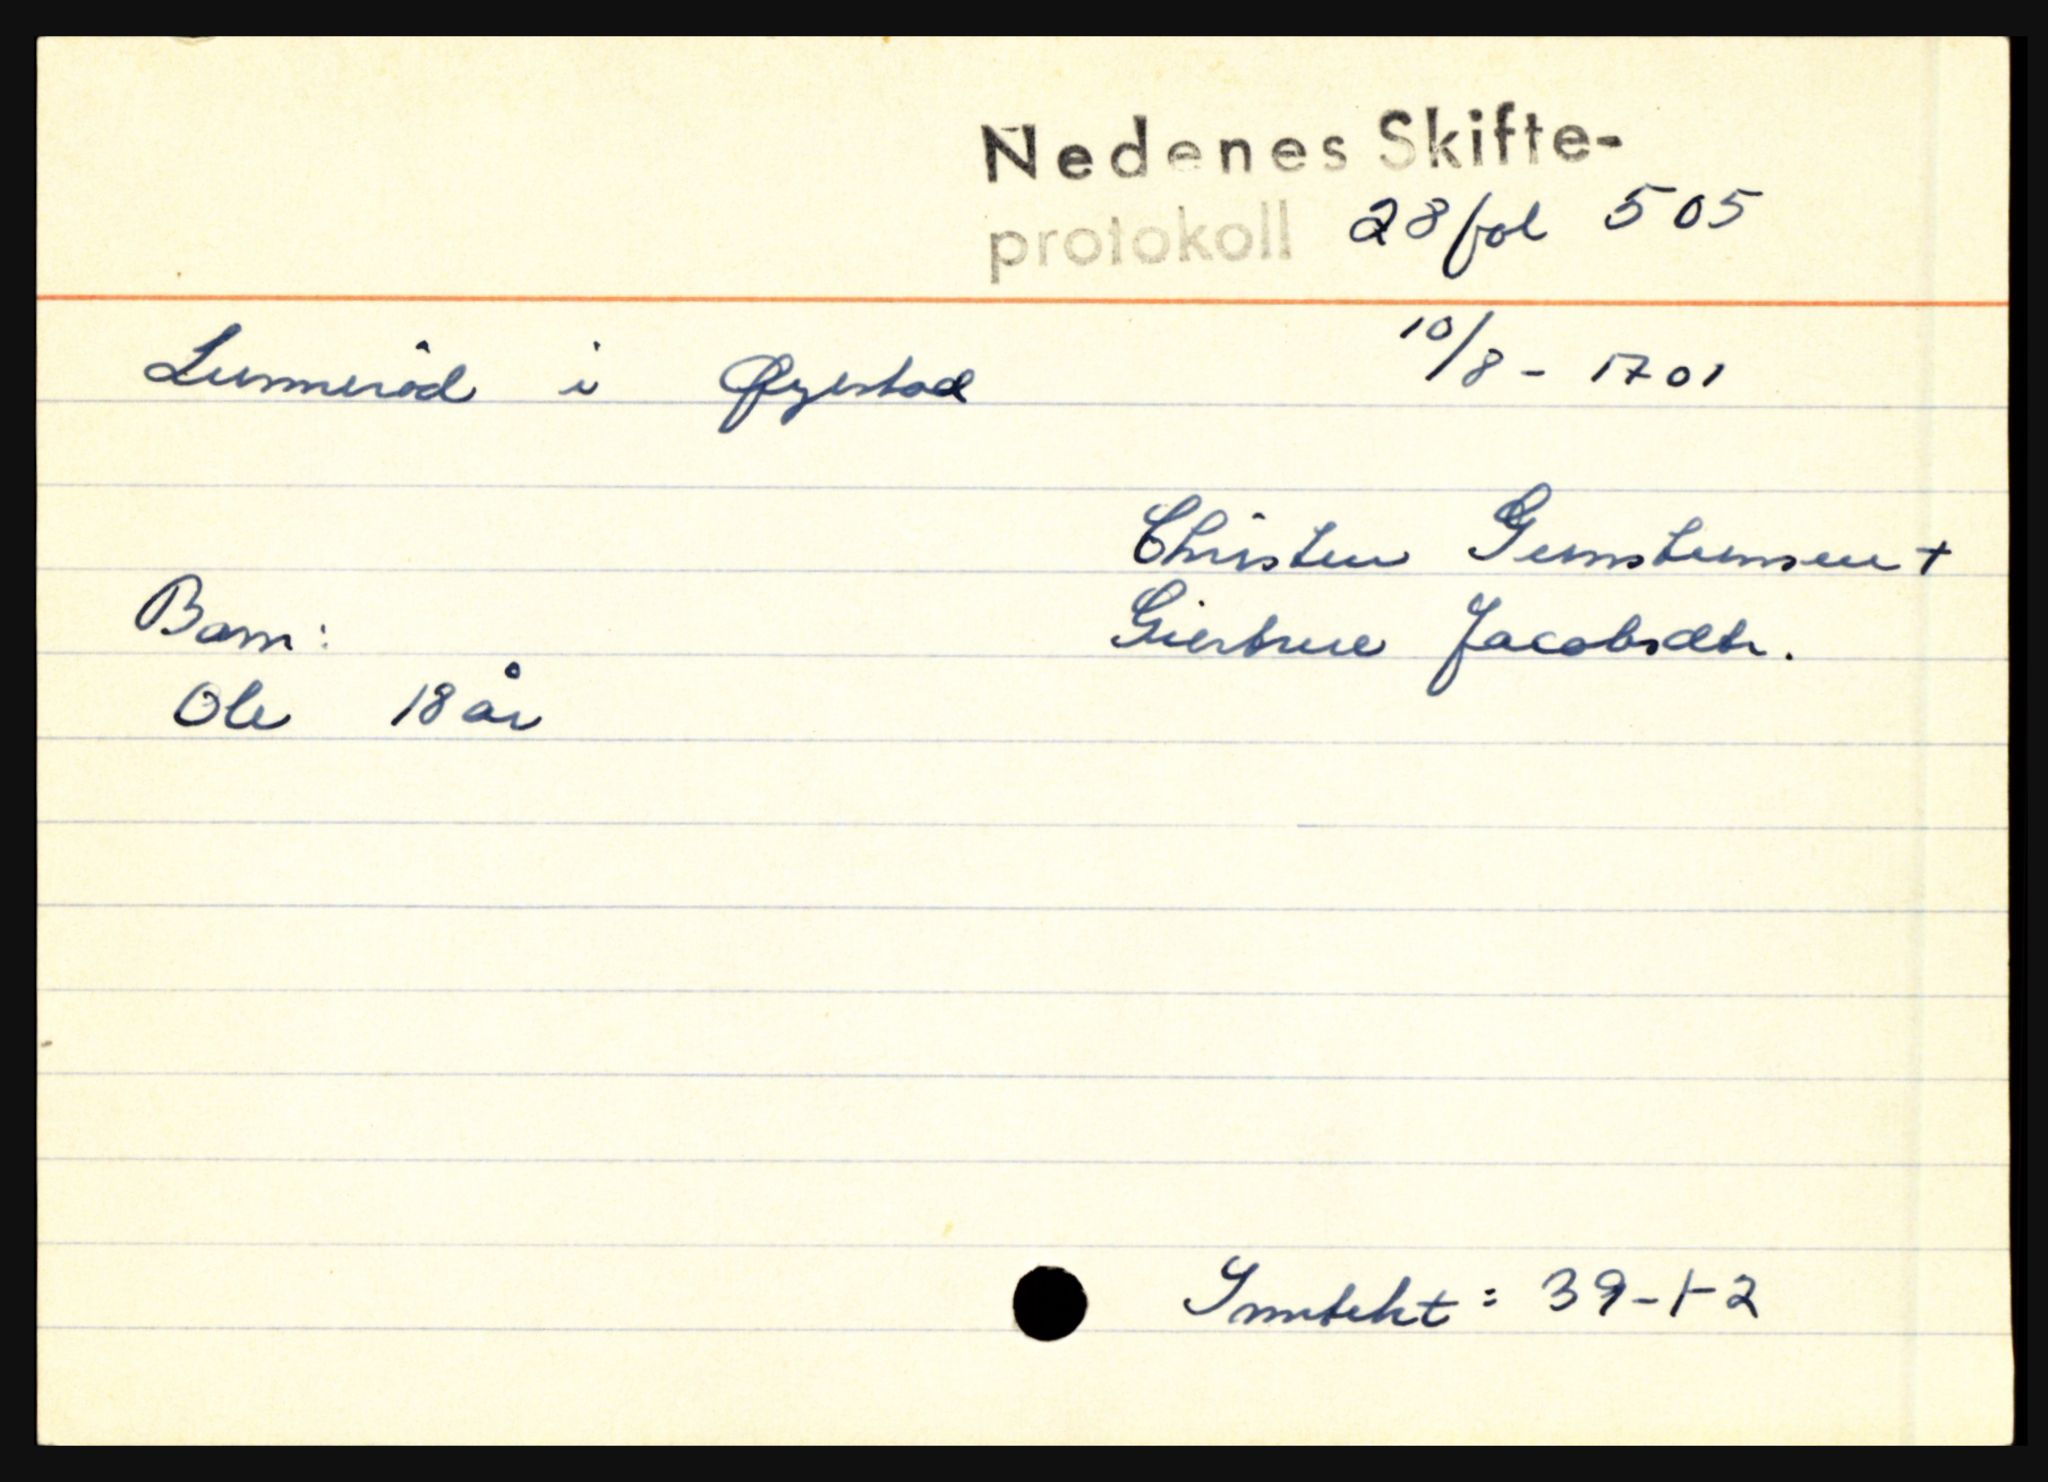 Nedenes Skifte-
protokoll 28 fol 505
Lunneröd i Øyestad 10/8 - 1701
Christen Gunstensen +
Barn: Giertrue Jacobsdtr.
Ole 18 år
Inntekt: 39-1-2